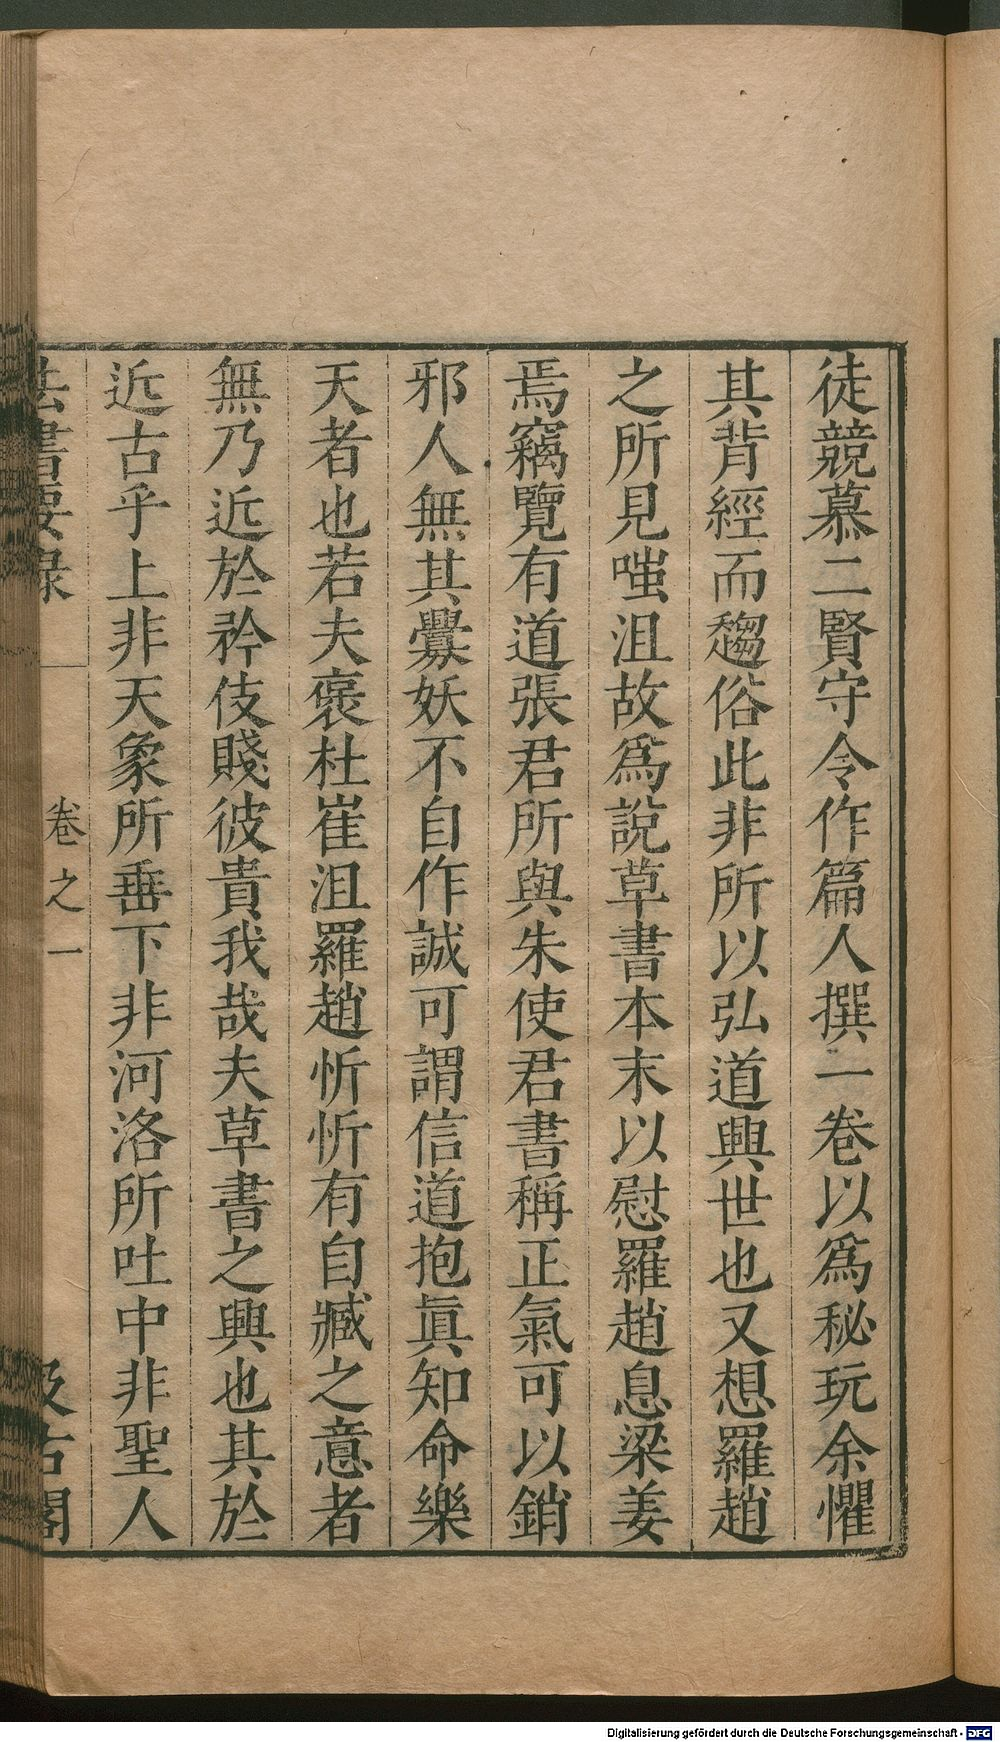 徒競慕二賢守令作篇人撰一卷以爲秘玩余懼
其背經而趨俗此非所以弘道興世也又想羅趙
之所見嗤沮故爲說草書本末以慰羅趙息梁姜
焉竊覽有道張君所與朱使君書稱正氣可以銷
邪人無其釁妖不自作誠可謂信道抱眞知命樂
天者也若夫褒杜崔沮羅趙忻忻有自臧之意者
無乃近於矜伎賤彼貴我哉夫草書之興也其於
近古乎上非天象所垂下非河洛所吐中非聖人
法書要錄
卷之一
汲古閣
Digitalisierung gefördert durch die Deutsche Forschungsgemeinschaft - DFG